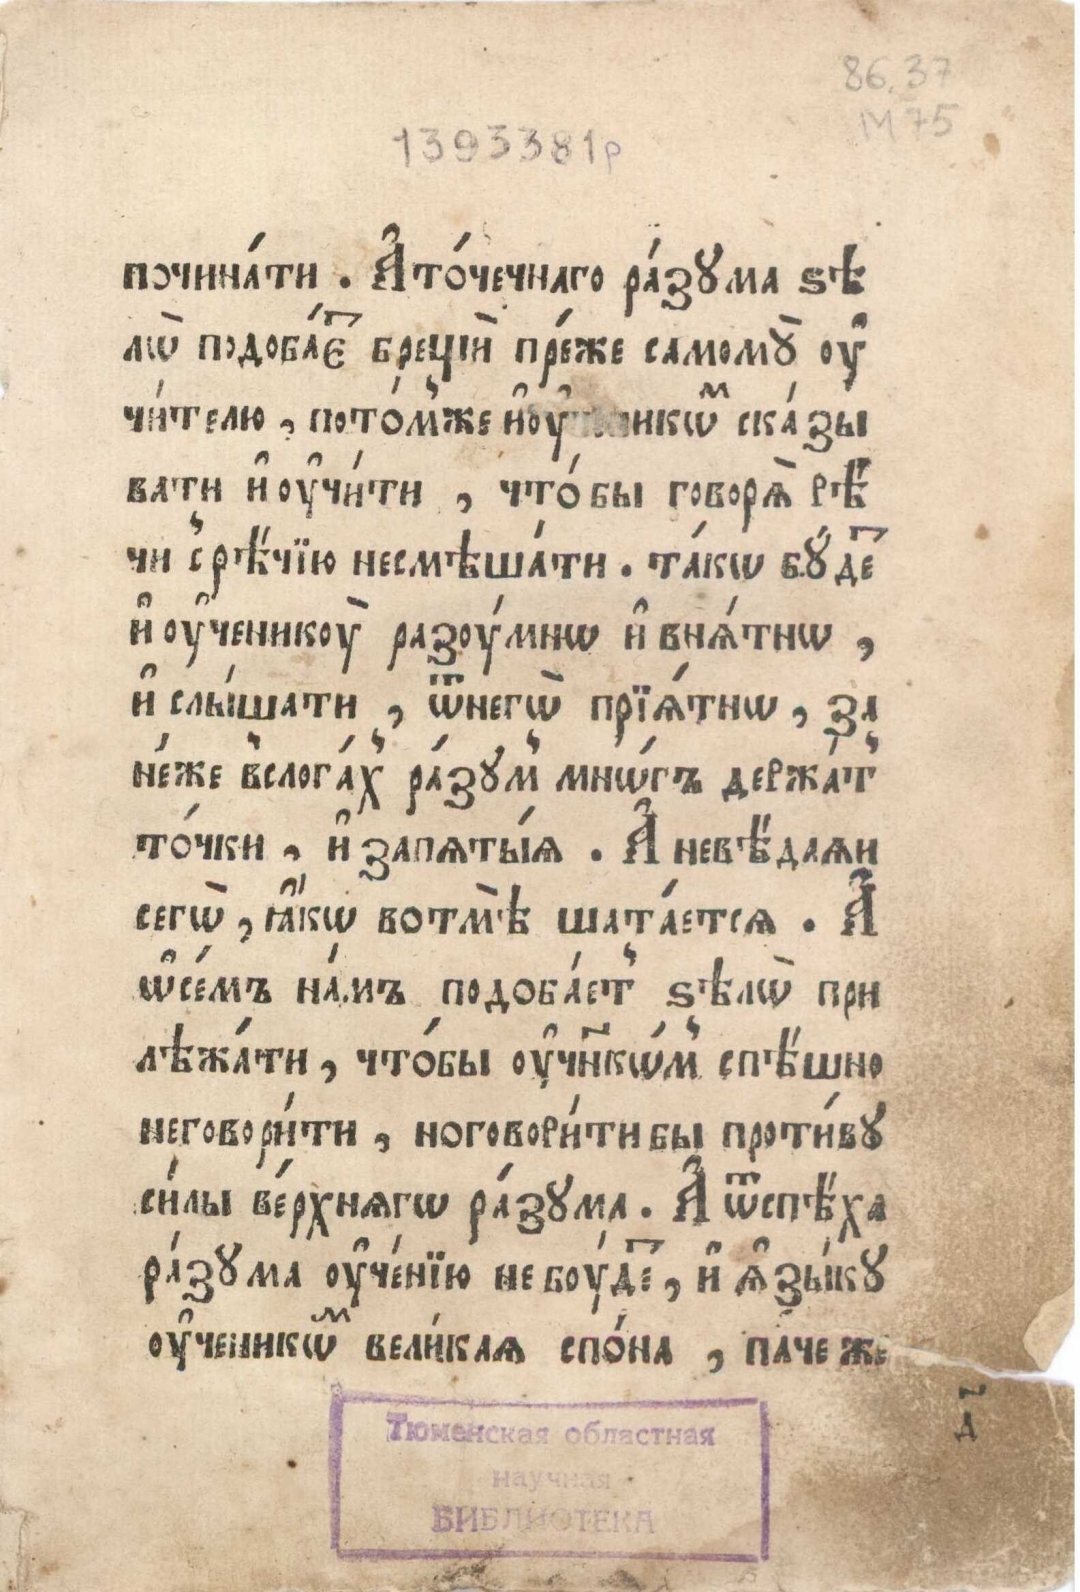 86.37
М75
1393381р
починáти . А҆ то́чечнаго ра́зꙋма ѕѣ
лѡ̀ подоба́є҄ брещѝ пре́же самомꙋ̀ оу҆
чи́телю , пото́м̾же и҆ скáзы
вати и҆ оу҆чи́ти , что́бы говорѧ̀ рѣ́
чи с̾рѣ́чїю несмѣша́ти . та́кѡ бꙋ́дє҄
и҆ оу҆ченикоу̀ разоу́мнѡ и҆ внѧ́тнѡ ,
и҆ слы́шати , ѿнегѡ̀ прїѧ́тнѡ , за
не́же в̾слога́х̾ ра́зꙋм̾ мнѡ́гъ держа́т̾
то́чки , и҆ запѧты́ѧ . А҆ невѣ́даѧи
сегѡ̀ , ꙗ҆́кѡ вотмѣ̀ шата́етсѧ . А҆
ѡ҆се́мъ на́мъ подоба́ет̾ ѕѣлѡ̀ при
лѣжа́ти , что́бы оу҆чн҃кѡ́м̾ спѣ́шно
неговори́ти , ноговори́ти бы проти́вꙋ
си́лы ве́рхнѧгѡ ра́зꙋма . А҆ ѿспѣ́ха
ра́зꙋма оу҆че́нїю не боу́дє҄ , и҆ ѧ҆зы́кꙋ
оу҆ченикѡⷨ вели́каѧ спо́на , па́че же
д҃
Тюменская областная
научная
БИБЛИОТЕКА